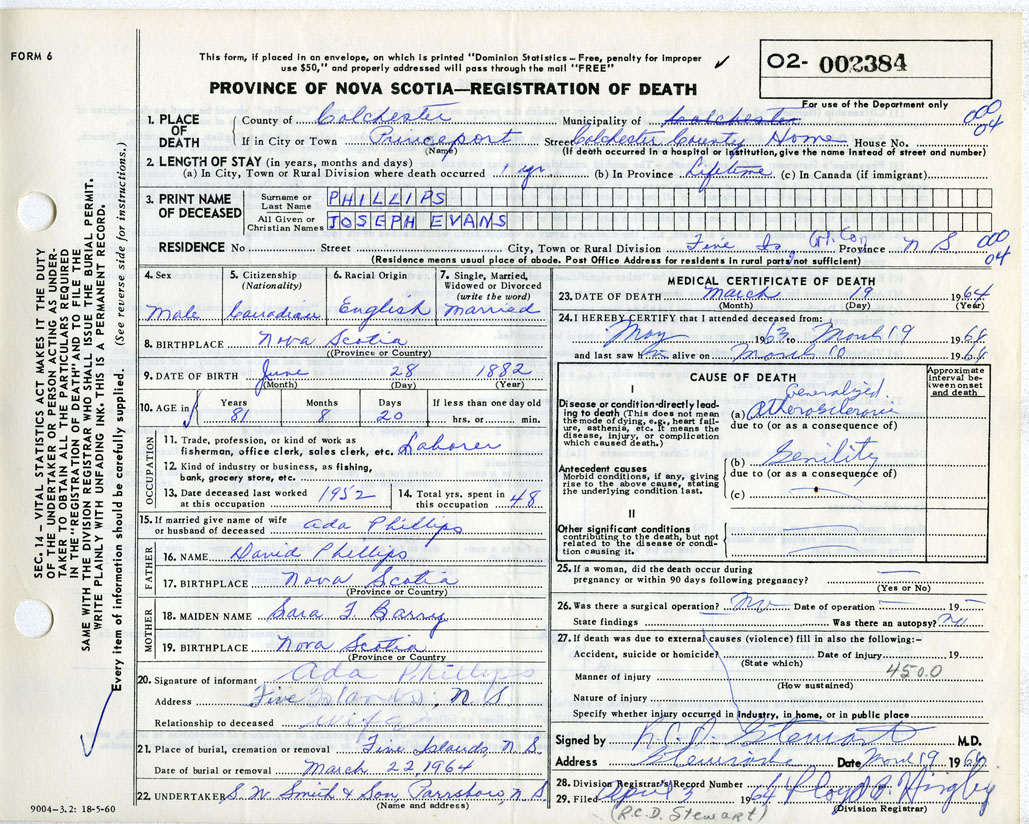 FORM 6
This form, if placed in an envelope, on which is printed "Dominion Statistics – Free, penalty for improper
use $50," and properly addressed will pass through the mail "FREE"
O2- 002384
For use of the Department only
PROVINCE OF NOVA SCOTIA—REGISTRATION OF DEATH
SEC. 14 – VITAL STATISTICS ACT MAKES IT THE DUTY
OF THE UNDERTAKER OR PERSON ACTING AS UNDER-
TAKER TO OBTAIN ALL THE PARTICULARS REQUIRED
IN THE "REGISTRATION OF DEATH" AND TO FILE THE
SAME WITH THE DIVISION REGISTRAR WHO SHALL ISSUE THE BURIAL PERMIT.
WRITE PLAINLY WITH UNFADING INK. THIS IS A PERMANENT RECORD.
Every item of information should be carefully supplied. (See reverse side for instructions.)
1. PLACE OF DEATH
County of Colchester Municipality of Colchester 000 04
If in City or Town Princeport Street Colchester County Home House No.
(Name) (If death occurred in a hospital or institution, give the name instead of street and number)
2. LENGTH OF STAY (in years, months and days)
(a) In City, Town or Rural Division where death occurred 1 yr (b) In Province Lifetime (c) In Canada (if immigrant)
3. PRINT NAME OF DECEASED
Surname or Last Name PHILLIPS
All Given or Christian Names JOSEPH EVANS
RESIDENCE No Street City, Town or Rural Division Five Is, Col. Co. Province N S 000 04
(Residence means usual place of abode. Post Office Address for residents in rural parts not sufficient)
4. Sex Male
5. Citizenship (Nationality) Canadian
6. Racial Origin English
7. Single, Married, Widowed or Divorced (write the word) Married
8. BIRTHPLACE Nova Scotia
((Province or Country)
9. DATE OF BIRTH June 28 1882
(Month) (Day) (Year)
10. AGE in Years 81 Months 8 Days 20 If less than one day old hrs. or min.
OCCUPATION
11. Trade, profession, or kind of work as
fisherman, office clerk, sales clerk, etc. Laborer
12. Kind of industry or business, as fishing,
bank, grocery store, etc.
13. Date deceased last worked at this occupation 1952
14. Total yrs. spent in this occupation 48
15. If married give name of wife or husband of deceased Ada Phillips
FATHER
16. NAME David Phillips
17. BIRTHPLACE Nova Scotia
(Province or Country)
MOTHER
18. MAIDEN NAME Sara J. Barry
19. BIRTHPLACE Nova Scotia
(Province or Country
20. Signature of informant Ada Phillips
Address Five Islands, N S
Relationship to deceased wife
21. Place of burial, cremation or removal Five Islands, N. S.
Date of burial or removal March 22, 1964
22. UNDERTAKER S. W. Smith & Son, Parrsboro, N. S.
(Name and address)
9004-3.2: 18-5-60
MEDICAL CERTIFICATE OF DEATH
23. DATE OF DEATH March 19 1964
(Month) (Day) (Year)
24. I HEREBY CERTIFY that I attended deceased from:
May 1963 to March 19 1964
and last saw him alive on March 10 1964
CAUSE OF DEATH
Approximate interval between onset and death
I
Disease or condition directly lead-
ing to death (This does not mean
the mode of dying, e.g., heart fail-
ure, asthenia, etc. It means the
disease, injury, or complication
which caused death.)
(a) Generalized Atherosclerosis
due to (or as a consequence of)
Antecedent causes
Morbid conditions, if any, giving
rise to the above cause, stating
the underlying condition last.
(b) Senility
due to (or as a consequence of)
(c)
II
Other significant conditions
contributing to the death, but not
related to the disease or condi-
tion causing it.
25. If a woman, did the death occur during
pregnancy or within 90 days following pregnancy?
(Yes or No)
26. Was there a surgical operation? No Date of operation 19
State findings Was there an autopsy? No
27. If death was due to external causes (violence) fill in also the following:–
Accident, suicide or homicide? Date of injury 19
(State which)
4500
Manner of injury
(How sustained)
Nature of injury
Specify whether injury occurred in industry, in home, or in public place
Signed by R.C.D. Stewart M.D.
Address Date March 19 1964
28. Division Registrar's Record Number
29. Filed April 3 1964 Floyd B. Hingley
(R.C.D. Stewart) (Division Registrar)